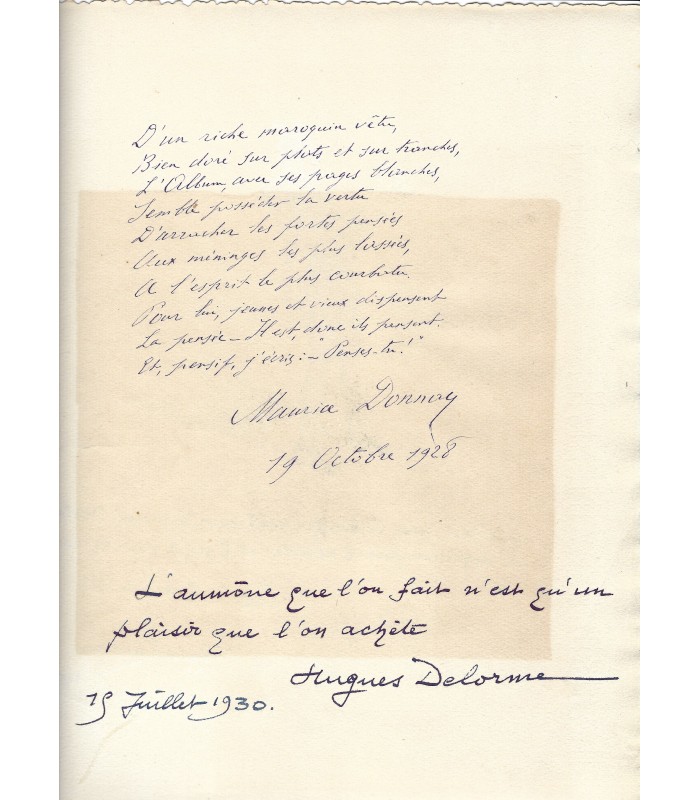 D'un riche maroquin vêtu,
Bien doré sur plats et sur tranches,
L'Album, avec ses pages blanches,
Semble posséder la vertu
D'arracher les fortes pensées
Aux méninges les plus lassées,
A l'esprit le plus courbatu.
Pour lui, jeunes et vieux dispensent
La pensée – Il est, donc ils pensent.
Et, pensif, j'écris : – "Penses-tu !"
Maurice Donnay
19 Octobre 1928
L'aumône que l'on fait n'est qu'un
plaisir que l'on achète
Hugues Delorme
15 Juillet 1930.